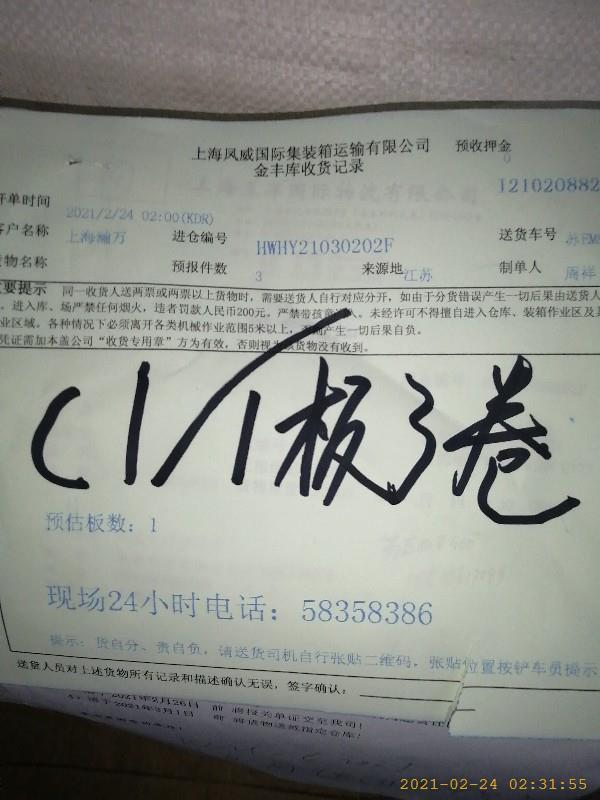 上海凤威国际集装箱运输有限公司 预收押金
金丰库收货记录 0
I21020882
开单时间 2021/2/24 02:00(KDR)
客户名称 上海瀚万 进仓编号 HWHY21030202F 送货车号 苏EM
货物名称 预报件数 3 来源地 江苏 制单人 周祥
重要提示 同一收货人送两票或两票以上货物时，需要送货人自行对应分开，如由于分货错误产生一切后果由送货人
，进入库、场严禁任何烟火，违者罚款人民币200元。严禁带孩童进入。未经许可不得擅自进入仓库、装箱作业区及其
业区域。各种情况下必须离开各类机械作业范围5米以上，否则产生一切后果自负。
凭证需加本盖公司“收货专用章”方为有效，否则视为该货物没有收到。
板3卷
预估板数：1
现场24小时电话：58358386
提示：货自分、责自负，请送货司机自行张贴二维码，张贴位置按铲车员提示
送货人员对上述货物所有记录和描述确认无误，签字确认：
于2021年2月26日 前 将报关单证交至我司！
于2021年3月1日 前 将货物送抵指定仓库！
2021-02-24 02:31:55